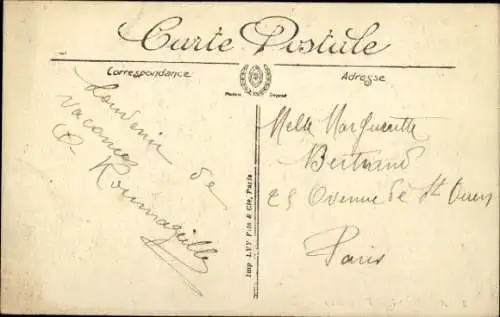 Carte Postale
Correspondance
Adresse
Souvenir de
vacances
Imp. LEVY Fils & Cie, Paris
Melle Marguerite
Bertrand
25 Avenue de St Ouen
Paris